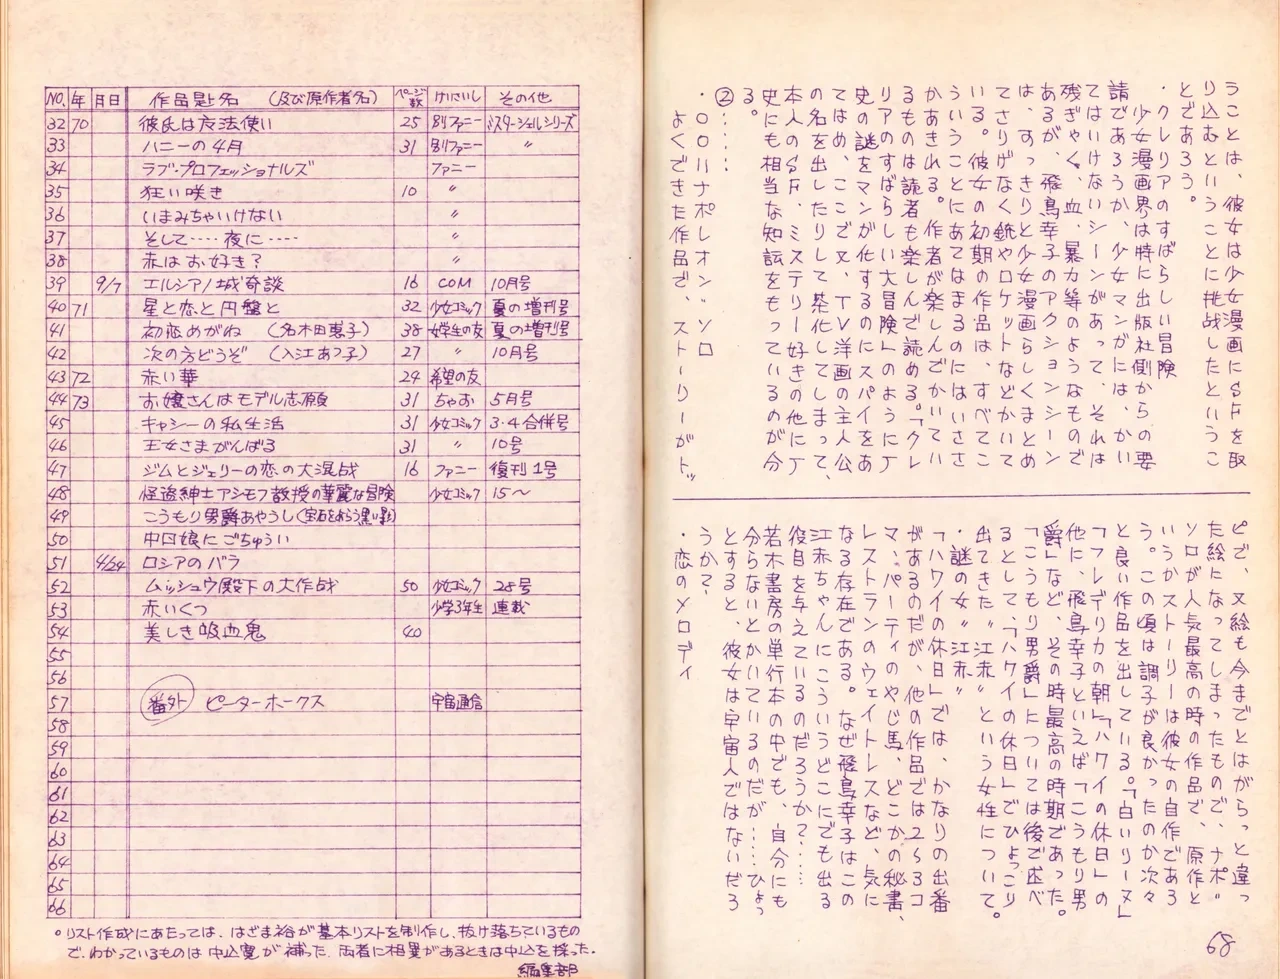 うことは、彼女は少女漫画にSFを取
り込むということに挑戦したというこ
とであろう。
・クレリアのすばらしい冒険
少女漫画界は特に出版社側からの要
請であろうか、少女マンガには、かい
てはいけないシーンがあって、それは
残ぎゃく、血、暴力等のようなもので
あるが、飛鳥幸子のアクションシーン
は、すっきりと少女漫画らしくまとめ
てさりげなく銃やロケットなどかいて
いる。彼女の初期の作品は、すべてこ
ういうことにあてはまるのにはいささ
かあきれる。作者が楽しんでかいてい
るものは読者も楽しんで読める。「クレ
リアのすばらしい大冒険」のように厂
史の謎をマンガ化するのにスパイをあ
てはめ、ここで又、TV洋画の主人公
の名を出したりして、茶化してしまって、
本人のSF、ミステリー好きの他に厂
史にも相当な知識をもっているのが分
る。
②……
・〇〇ハナポレオン・ソロ
よくできた作品で、ストーリーがト〃
ピで、又絵も今までとはがらっと違っ
た絵になってしまったもので、ナポ〃
ソロが人気最高の時の作品で、原作と
いうかストーリーは彼女の自作であろ
う。この頃は調子が良かったのか次々
と良い作品を出している。「白いリーヌ」
「フレデリカの朝」「ハワイの休日」の
他に、飛鳥幸子といえば「こうもり男
爵」など、その時最高の時期であった。
「こうもり男爵」については後で述べ
るとして、「ハワイの休日」でひょっこり
出てきた〃江赤〃という女性について。
・謎の女〃江赤〃
「ハワイの休日」では、かなりの出番
があるのだが、他の作品では2〜3コ
マ、パーティのやじ馬、どこかの秘書、
レストランのウェイトレスなど、気に
なる存在である。なぜ飛鳥幸子はこの
江赤ちゃんにこういうどこにでも出る
役目を与えているのだろうか？……
若木書房の単行本の中でも、自分にも
分らないとかいているのだが……ひょっ
とすると、彼女は宇宙人ではないだろ
うか？
・恋のメロディ
68
NO. 年 月日 作品題名 (及び原作者名) ページ数 けいさいし その他
32 70 彼氏は魔法使い 25 別ファニー ミスターシェルシリーズ
33 ハニーの4月 31 別ファニー 〃
34 ラブ・プロフェッショナルズ ファニー
35 狂い咲き 10 〃
36 いまみちゃいけない 〃
37 そして‥‥夜に‥‥ 〃
38 赤はお好き？ 〃
39 9/7 エルシアノ城奇談 16 COM 10月号
40 71 星と恋と円盤と 32 少女コミック 夏の増刊号
41 初恋めがね (名木田恵子) 38 女学生の友 夏の増刊号
42 次の方どうぞ (入江あつ子) 27 〃 10月号
43 72 赤い華 24 希望の友
44 73 お嬢さんはモデル志願 31 ちゃお 5月号
45 キャシーの私生活 31 少女コミック 3・4合併号
46 王女さまがんばる 31 〃 10号
47 ジムとジェリーの恋の大混戦 16 ファニー 復刊1号
48 怪盗紳士アシモフ教授の華麗な冒険 少女コミック 15〜
49 こうもり男爵あやうし(宝石をねらう黒い影)
50 中国娘にごちゅうい
51 4/24 ロシアのバラ
52 ムッシュウ殿下の大作戦 50 少女コミック 28号
53 赤いくつ 少学3年生 連載
54 美しき吸血鬼 40
55
56
57 番外 ピーターホークス 宇宙通信
58
59
60
61
62
63
64
65
66
○リスト作成にあたっては、はざま裕が基本リストを制作し、抜け落ちているもの
で、わかっているものは中込寛が補った。両者に相異があるときは中込を採った。
編集部B